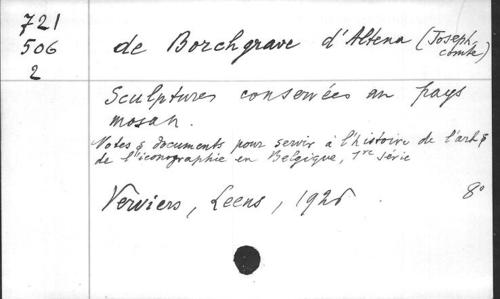 721
506
2
de Borchgrave d'Altena (Joseph,
comte)
Sculptures conservées au pays
mosan.
Notes & documents pour servir à l'histoire de l'art &
de l'iconographie en Belgique, 1re série
Verviers, Leens, 1926 8°